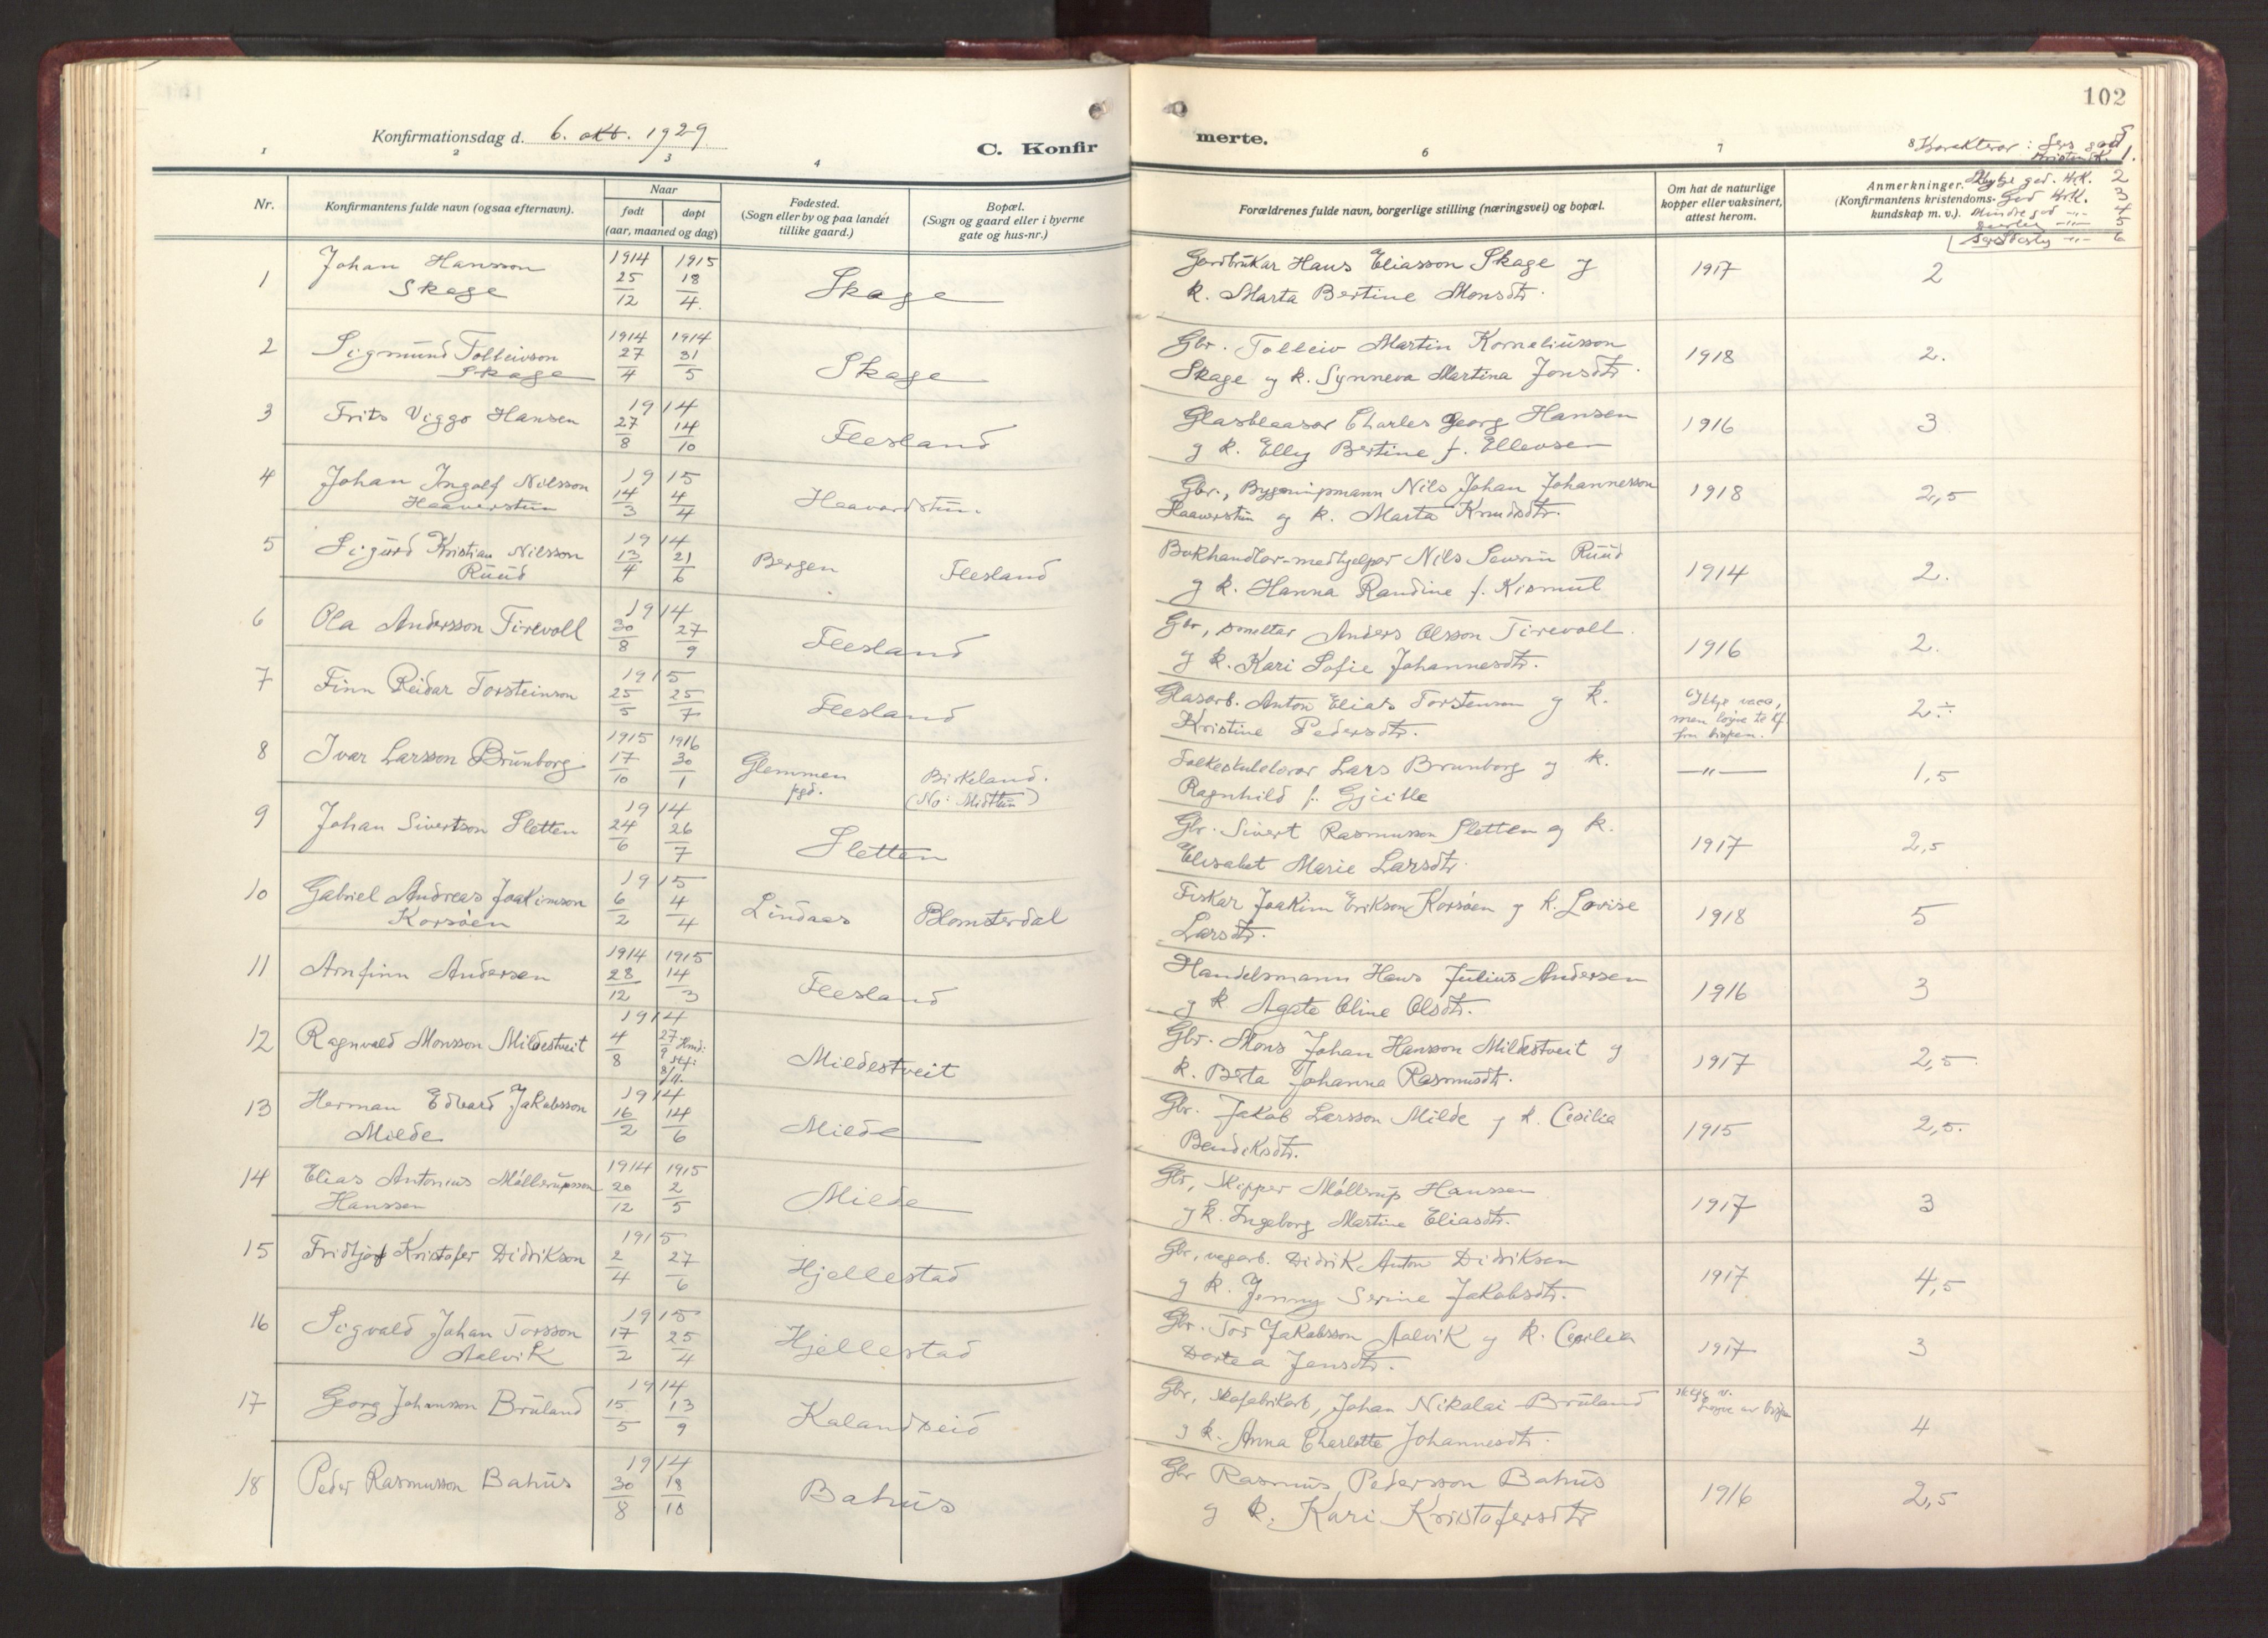 102
Konfirmationsdag d. 6. okt. 1929
C. Konfir
merte.
8 Karakterar: Sers god 1.
1 2 3 4 6 7
Nr.
Konfirmantens fulde navn (ogsaa efternavn).
Naar
født døpt
(aar, maaned og dag)
Fødested.
(Sogn eller by og paa landet
tillike gaard.)
Bopæl.
(Sogn og gaard eller i byerne
gate og hus-nr.)
Forældrenes fulde navn, borgerlige stilling (næringsvei) og bopæl.
Om hat de naturlige
kopper eller vaksinert,
attest herom.
Anmerkninger.
(Konfirmantens kristendoms-
kundskap m. v.).
god Kr.K. 2
God Kr.K. 3
Mindre god -"- 4
-"- 5
-"- 6
1 Johan Hansson 1914 1915
Skage 25/12 18/4 Skage
Gardbrukar Hans Eliasson Skage og 1917 2
k. Marta Bertine Monsdtr.
2 Sigmund Tolleivson 1914 1914
Skage 27/4 31/5 Skage
Gbr. Tolleiv Martin Korneliusson 1918 2.
Skage og k. Synneva Martina Jonsdtr.
3 Frits Viggo Hansen 1914
27/8 14/10 Flesland
Glasblaasar Charles Georg Hansen 1916 3
og k. Elly Bertine f. Ellevsen
4 Johan Ingolf Nilsson 1915
Haaverstun 14/3 4/4 Haavardstun.
Gbr., Bygningsmann Nils Johan Johannesson 1918 2,5
Haaverstun og k. Marta Knudsdtr.
5 Sigurd Kristian Nilsson 1914
Ruud 13/4 21/6 Bergen Flesland
Bokhandlar-medhjelper Nils Severin Ruud 1914 2.
og k. Hanna Randine f. Kismul
6 Ola Andersson Tirevoll 1914
30/8 27/9 Flesland
Gbr, smeltar Anders Olsson Tirevoll 1916 2.
og k. Kari Sofie Johannesdtr.
7 Finn Reidar Torsteinson 1915
25/5 25/7 Flesland
Glasarb. Anton Elias Torstensen og k. Ikkje vacs, 2÷
Kristine Pedersdtr. men løyve til kf.
fraa bispen.
8 Ivar Larsson Brunborg 1915 1916
17/10 30/1 Glemmen Birkeland.
pgd. (No: Midttun)
Folkeskulelærar Lars Brunborg og k. -"- 1,5
Ragnhild f. Gjeitle
9 Johan Sivertson Sletten 1914
24/6 26/7 Sletten
Gbr. Sivert Rasmusson Sletten og k. 1917 2,5
Elisabet Marie Larsdtr.
10 Gabriel Andreas Joakimson 1915
Korsøen 6/2 4/4 Lindaas Blomsterdal
Fiskar Joakim Erikson Korsøen og k. Lovise 1918 5
Larsdtr.
11 Arnfinn Andersen 1914 1915
28/12 14/3 Flesland
Handelsmann Hans Julius Andersen 1916 3
og k Agate Oline Olsdtr.
12 Ragnvald Monsson Mildestveit 1914
4/8 27/9 Hmd: Mildestveit
8/11.
Gbr. Mons Johan Hansson Mildestveit og 1917 2,5
k. Berta Johanna Rasmusdtr.
13 Herman Edvard Jakobsson 1914
Milde 16/2 14/6 Milde
Gbr. Jakob Larsson Milde og k. Cesilia 1915 2,5.
Bendiksdtr.
14 Elias Antonius Møllerupsson 1914 1915
Hanssen 20/12 2/5 Milde
Gbr, skipper Møllerup Hanssen 1917 3
og k. Ingeborg Martine Eliasdtr.
15 Fridtjof Kristofer Didrikson 1915
2/4 27/6 Hjellestad
Gbr, vegarb. Didrik Anton Didriksen 1917 4,5
og k. Jenny Serine Jakobsdtr.
16 Sigvald Johan Torsson 1915
Aalvik 17/2 25/4 Hjellestad
Gbr. Tor Jakobsson Aalvik og k. Cesilia 1917 3
Dortea Jensdtr.
17 Georg Johansson Bruland 1914
15/5 13/9 Kalandseid
Gbr, skofabrikarb, Johan Nikolai Bruland Ikkje v. 4
og k. Anna Charlotte Johannesdtr. løyve av bispen
18 Peder Rasmusson Bahus 1914
30/8 18/10 Bahus
Gbr Rasmus Pedersson Bahus 1916 2,5
og k. Kari Kristofersdtr